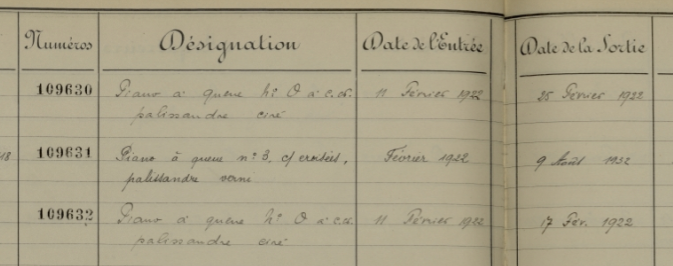 Numéros Désignation Date de l'Entrée Date de la Sortie
109630 Piano à queue nº 0 à c.cr. 11 Février 1922 25 Février 1922
palissandre ciré
109631 Piano à queue nº 3, c/ croisées, Février 1922 9 Août 1922
palissandre verni
109632 Piano à queue nº 0 à c.cr. 11 Février 1922 17 Fév. 1922
palissandre ciré